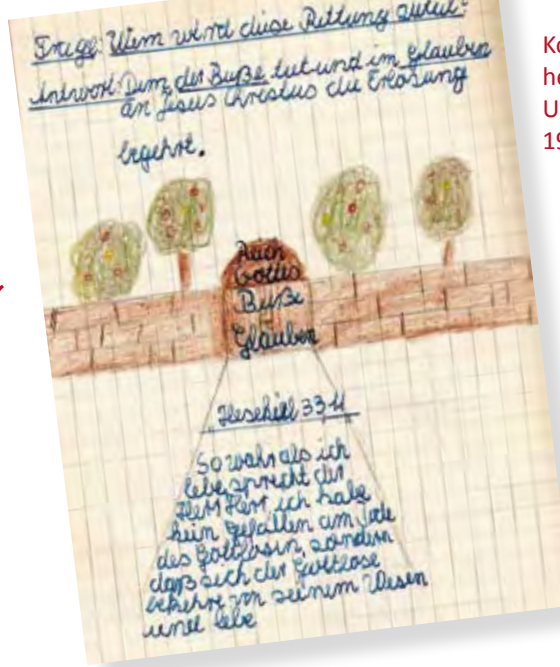 Frage: Wem wird diese Rettung zuteil?
Antwort: Dem, der Buße tut und im Glauben
an Jesus Christus die Erlösung
begehrt.
Reich
Gottes
Buße
Glauben
Hesekiel 33.11
So wahr als ich
lebe spricht der
Herr Herr, ich habe
kein Gefallen am Tode
des Gottlosen, sondern
daß sich der Gottlose
bekehre von seinem Wesen
und lebe
Ko
he
U
19